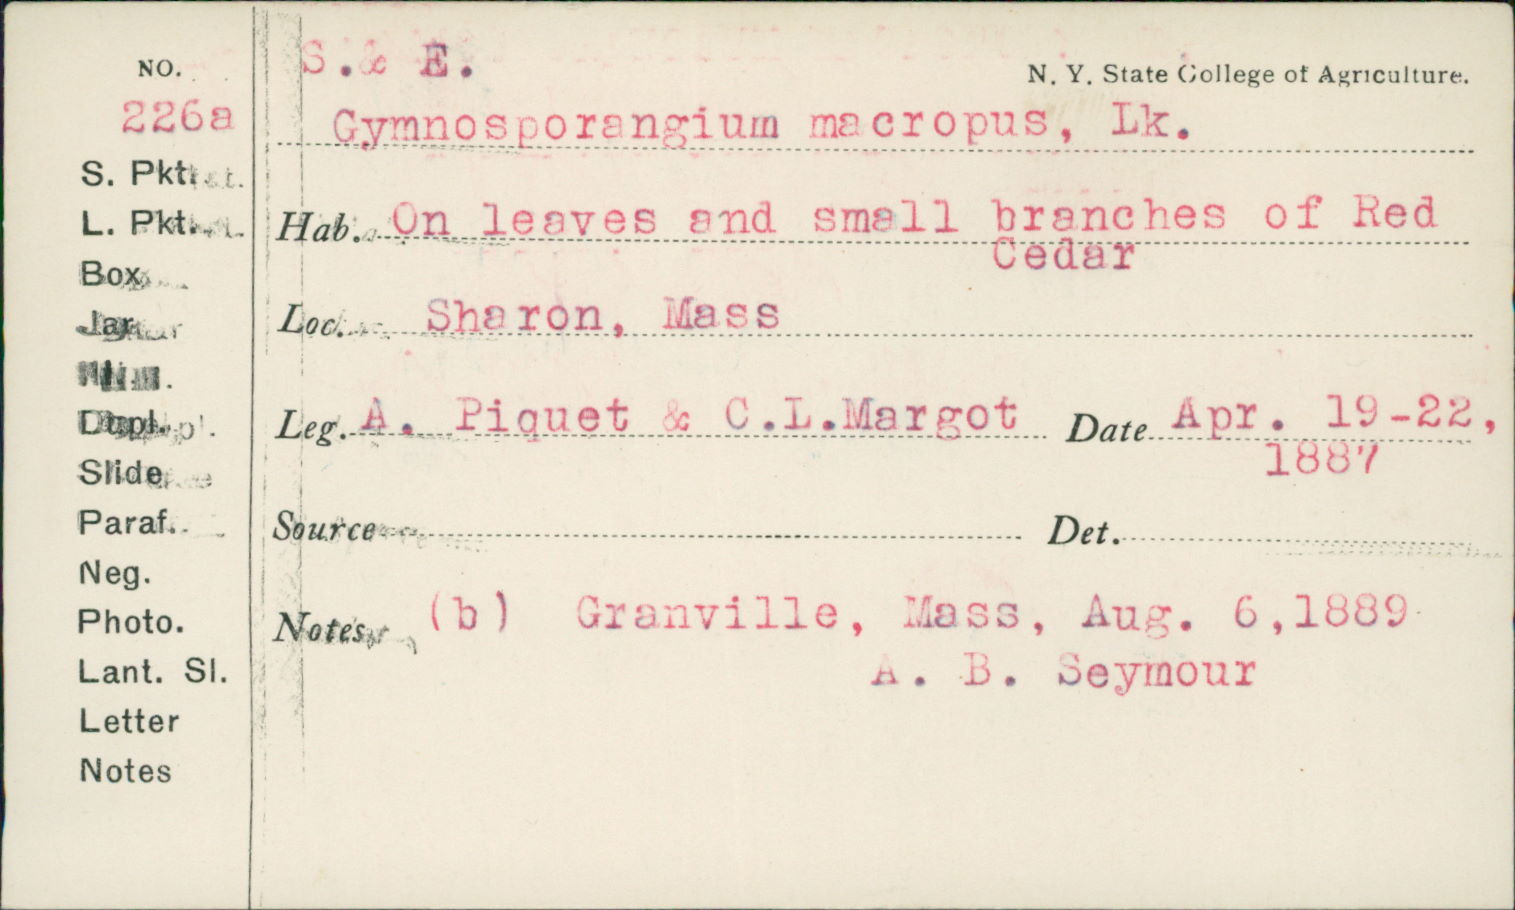 NO.
226a
S. Pkt.
L. Pkt.
Box
Jar
Dupl.
Slide
Paraf.
Neg.
Photo.
Lant. Sl.
Letter
Notes
S. & E.
N. Y. State College of Agriculture.
Gymnosporangium macropus, Lk.
Hab. On leaves and small branches of Red
Cedar
Loc. Sharon, Mass
Leg. A. Piquet & C.L.Margot Date Apr. 19-22,
1887
Source Det.
Notes (b) Granville, Mass, Aug. 6,1889
A. B. Seymour